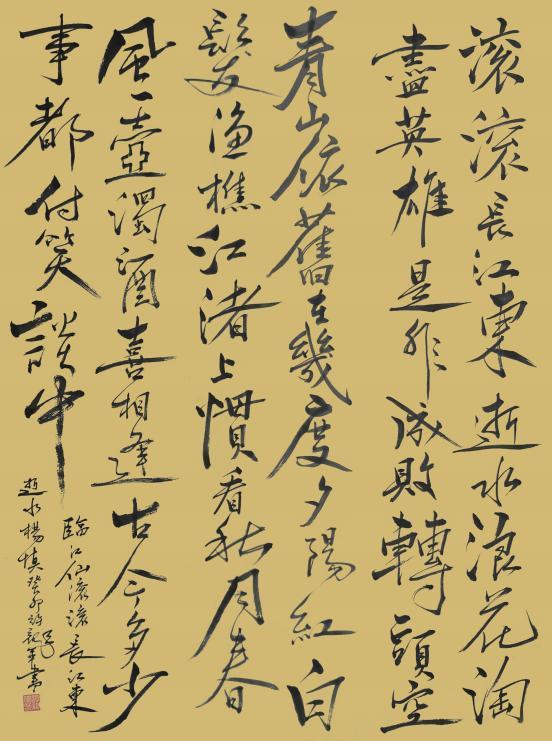 滚滚長江東逝水浪花淘
盡英雄是非成敗轉頭空
青山依舊在幾度夕陽紅白
髮渔樵江渚上慣看秋月春
風一壺濁酒喜相逢古今多少
事都付笑談中
臨江仙滚滚長江東
逝水楊慎癸卯